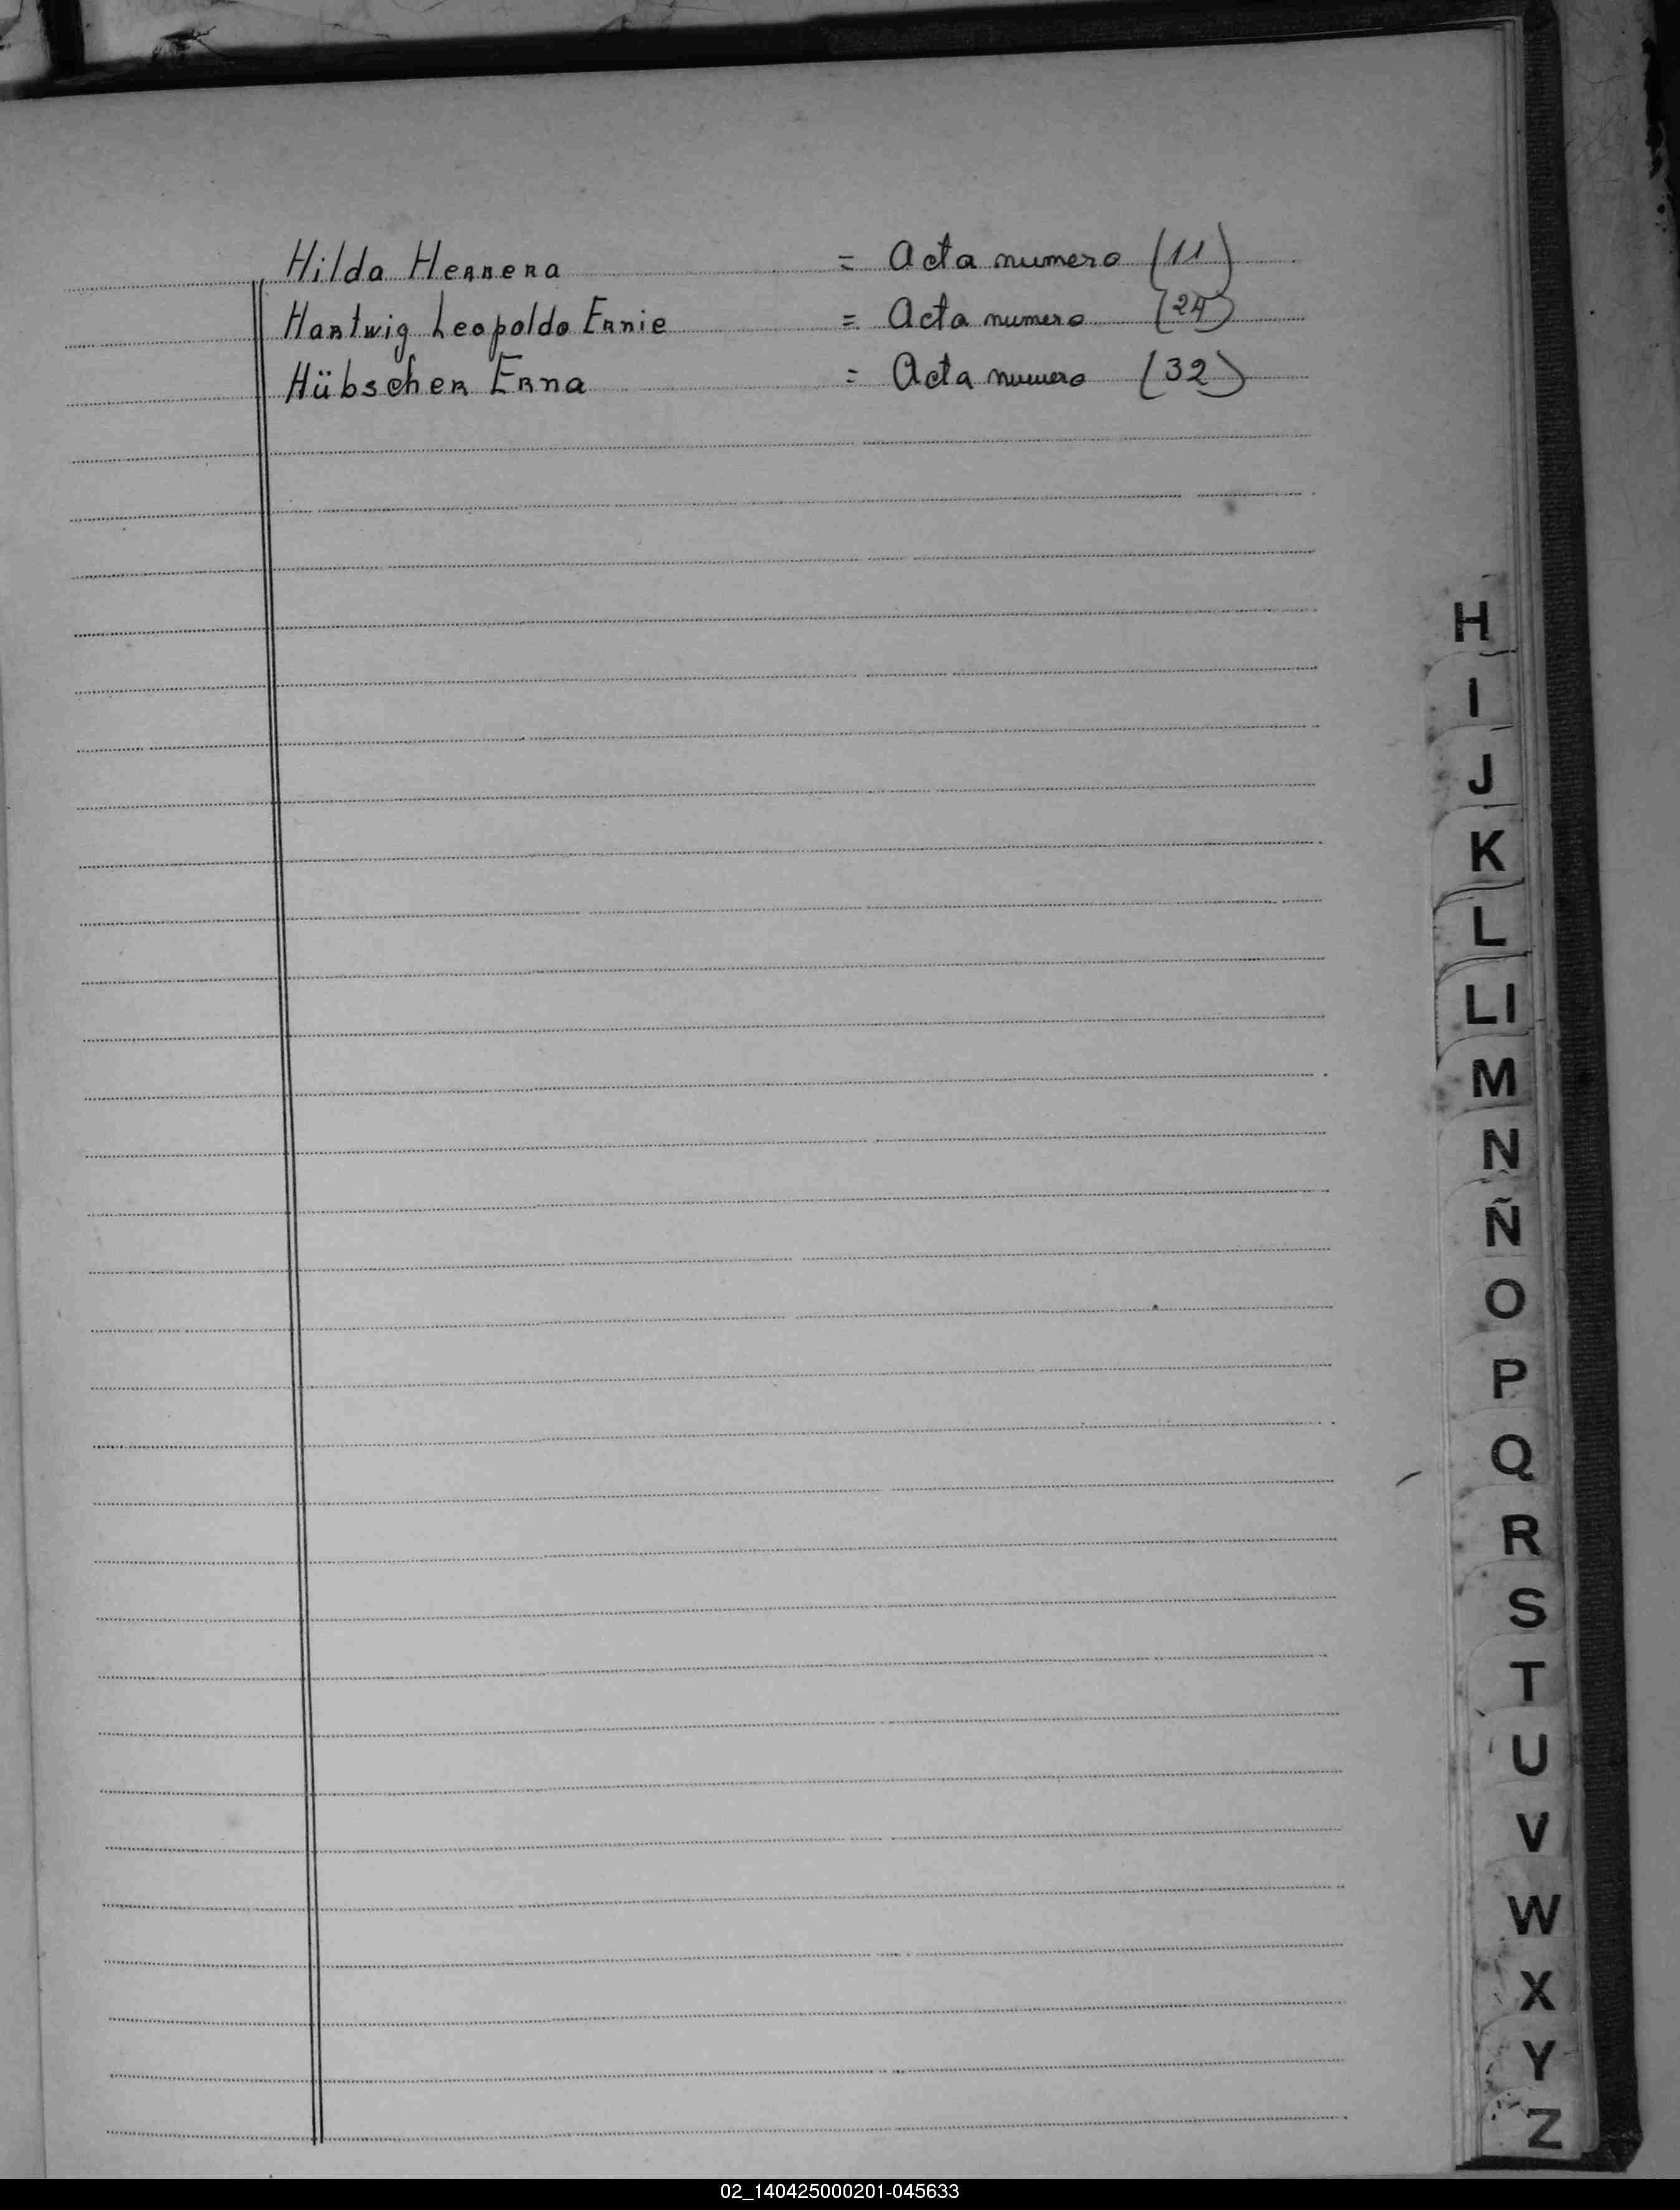 Hilda Herrera = Acta numero (11)
Hartwig Leopoldo Ernie = Acta numero (24)
Hübscher Erna = Acta numero (32)
H
I
J
K
L
Ll
M
N
Ñ
O
P
Q
R
S
T
U
V
W
X
Y
Z
02_140425000201-045633